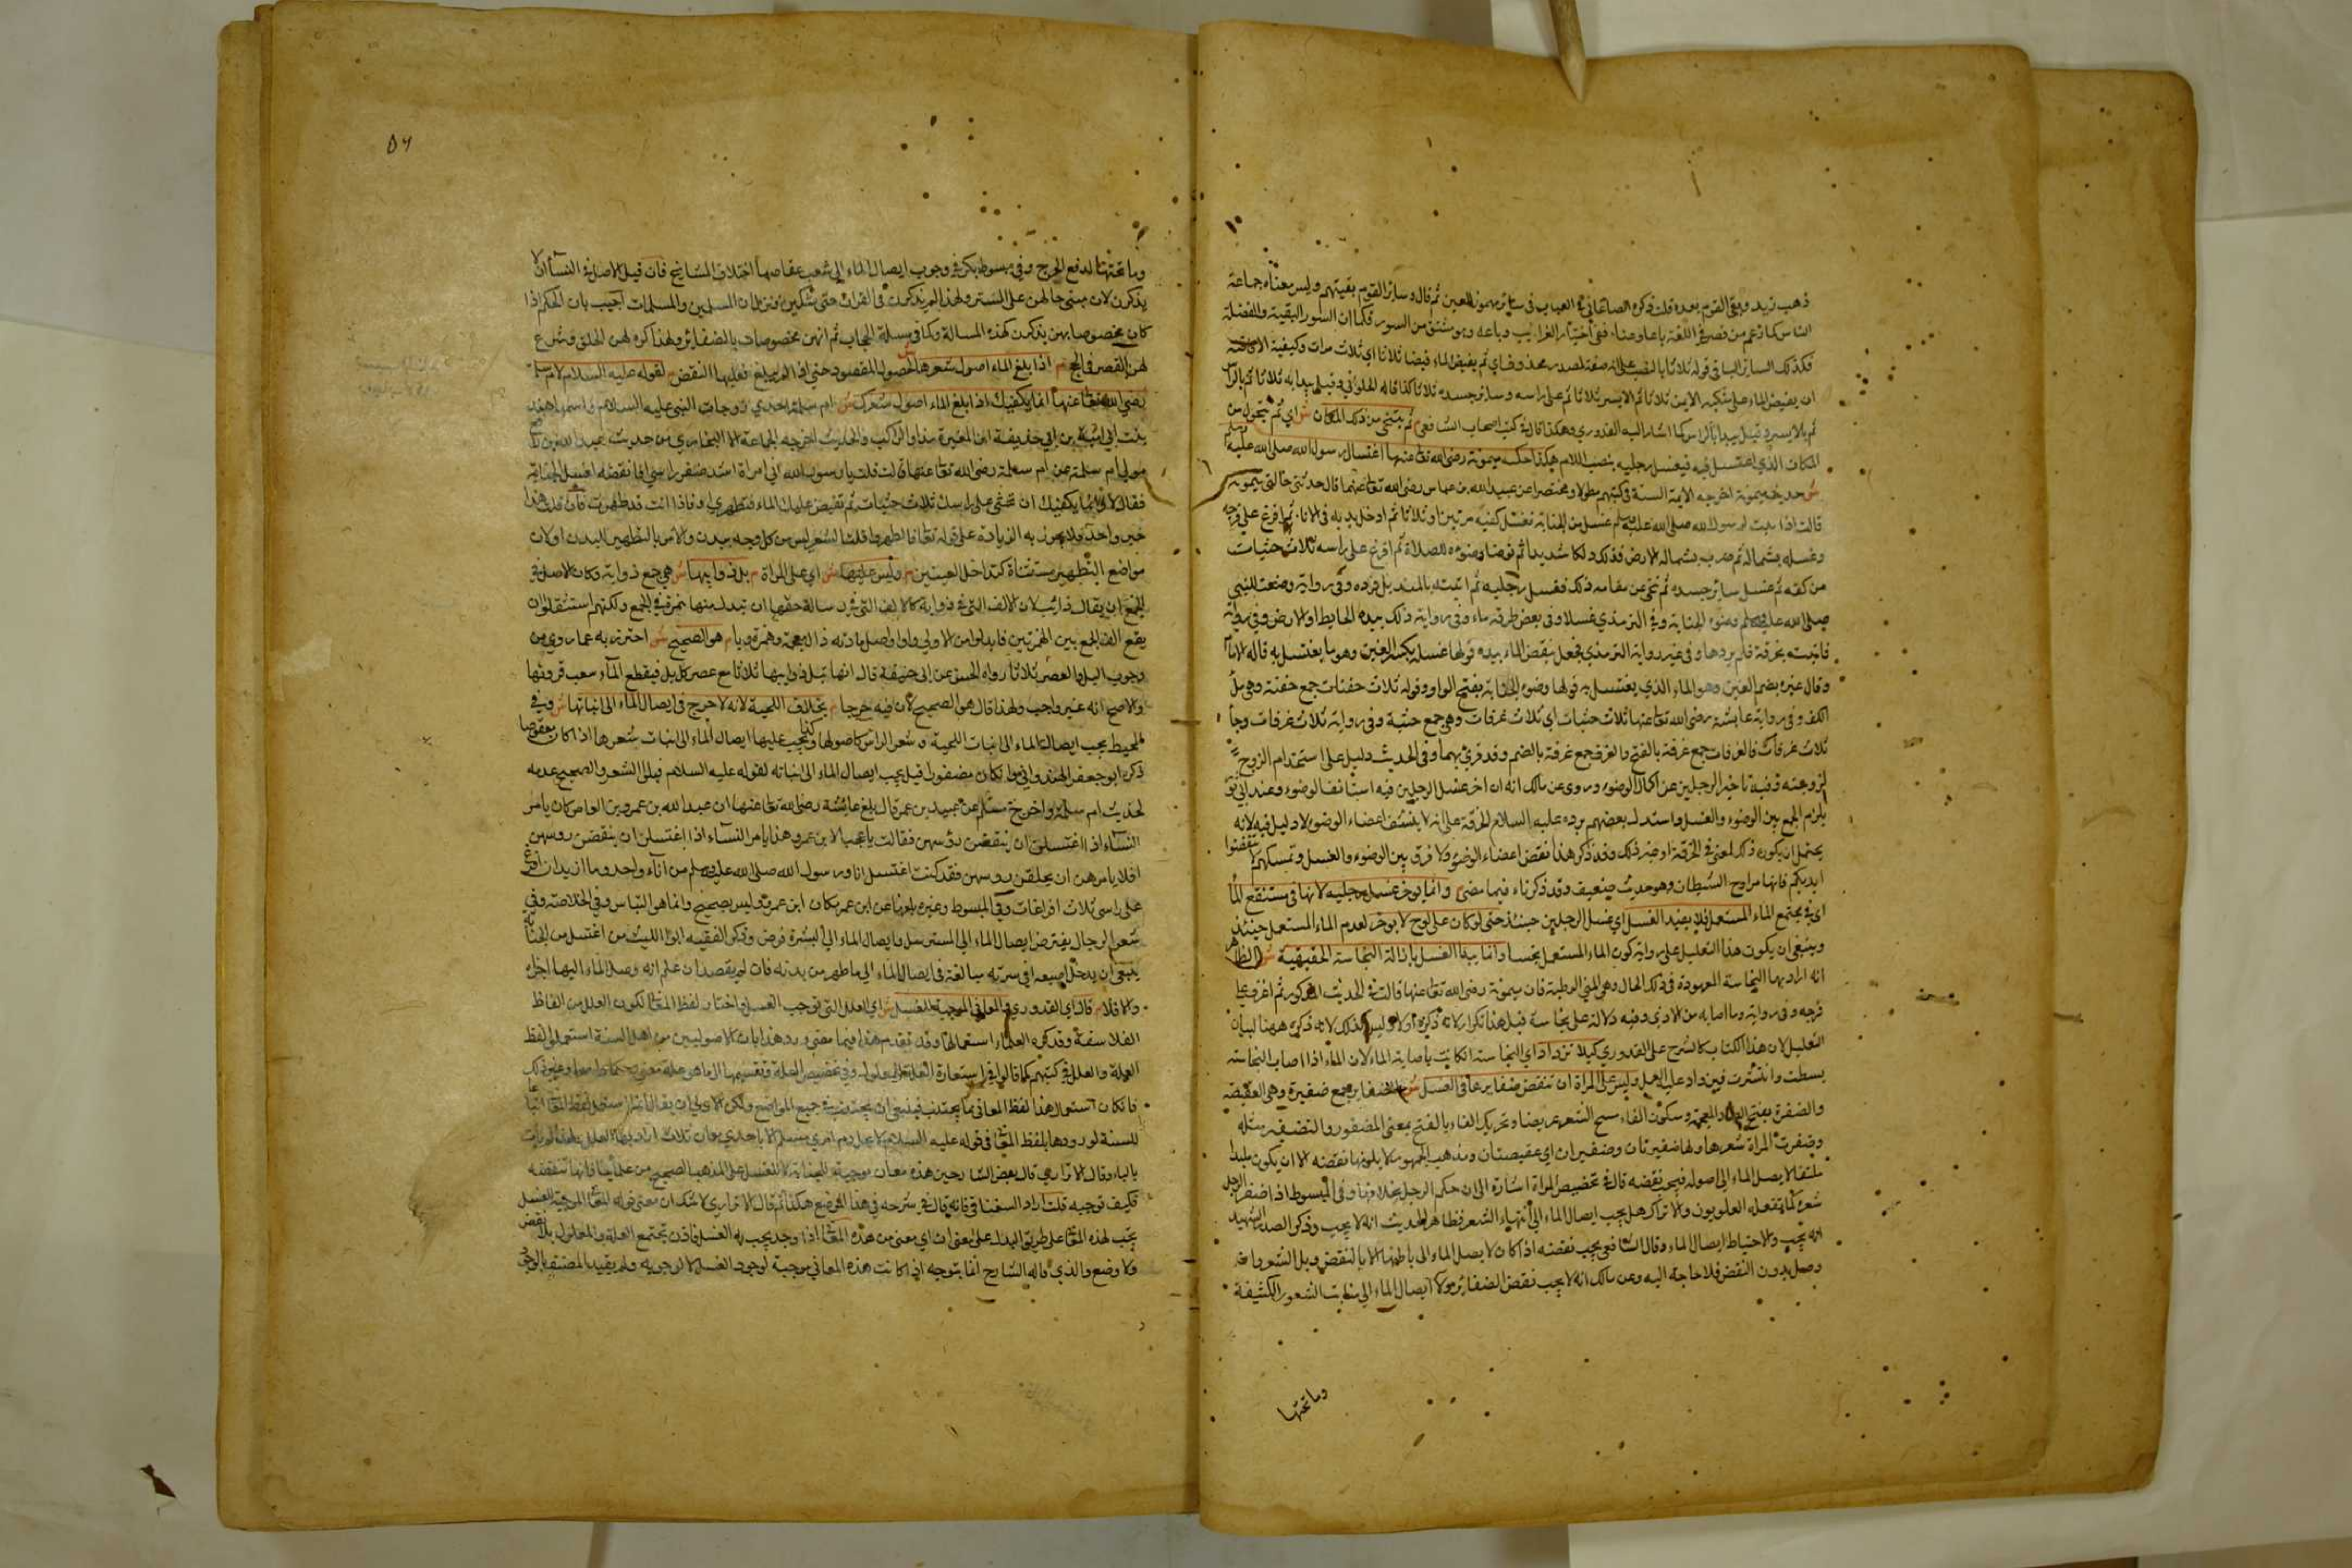 ذهب زيد وبقي القوم بعده قلت ذكره الصاغاني في العباب في سائر مهموز العين ثم قال وسائر القوم بقيتهم وليس معناه جماعة
الناس كما زعم من قصر في اللغة باعا وصا ففي اختيار الغرايب وباعه وهو مشتق من السور فكما ان السور البقية والفضلة
فكذلك السائر الباقي قوله ثلاثا بالنصب على انه صفة لمصدر محذوف اي ثم يفيض الماء فيضا ثلاثا اي ثلاث مرات وكيفية الافاضة
ان يفيض الماء على منكبه الايمن ثلاثا ثم الايسر ثلاثا ثم على راسه وسائر جسده ثلاثا كذا قاله الحلواني وقيل يبدا به ثلاثا ثم بالراس
ثم بالايسر وقيل يبدا بالراس كما اشار اليه القدوري وهكذا قاله في كتب اصحاب الشافعي م ثم يتنحى من ذلك المكان ش اي ثم يتحول من
المكان الذي اغتسل فيه فيغسل رجليه بنصب اللام هكذا حكت ميمونة رضي الله تعا عنها اغتسال رسول الله صلى الله عليه وسلم
ش حديث ميمونة اخرجه الايمة الستة في كتبهم مطولا ومختصرا عن عبد الله بن عباس رضي الله تعا عنهما قال حدثتني خالتي ميمونة
قالت ادنيت لرسول الله صلى الله عليه وسلم غسل من الجنابة فغسل كفيه مرتين او ثلاثا ثم ادخل يده في الاناء ثم افرغ على فرجه
وغسله بشماله ثم ضرب بشماله الارض فدلكه دلكا شديدا ثم توضا وضوءه للصلاة ثم افرغ على راسه ثلاث حثيات
من كفه ثم غسل سائر جسده ثم تنحى عن مقامه ذلك فغسل رجليه ثم اتيته بالمنديل فرده وفي رواية وضعت للنبي
صلى الله عليه وسلم وضوء الجنابة وفي الترمذي غسلا وفي بعض طرقه ماء وفي رواية ذلك بيده الحايط او الارض وفي رواية
فاتيته بخرقة فلم يردها وفي غير رواية الترمذي فجعل ينقض الماء بيده قولها غسل بكسر الغين وهو ما يغتسل به قاله الاناء
وقال غيره بضم الغين وهو الماء الذي يغتسل به قولها وضوء الجنابة بفتح الواو وقوله ثلاث حفنات جمع حفنة وهي ملء
الكف وفي رواية عايشة رضي الله تعا عنها ثلاث حثيات اي ثلاث غرفات وهي جمع حثية وفي رواية ثلاث غرفات وجا
ثلاث غرفات فالغرفات جمع غرفة بالفتح والغرف جمع غرفة بالضم وقد قرئ بهما وفي الحديث دليل على استخدام الزوج
لزوجته وفيه تاخير الرجلين عن اكمال الوضوء وروي عن مالك انه ان اخر غسل الرجلين فيه استانف الوضوء وعند ابي ثور
يلزم الجمع بين الوضوء والغسل واستدل بعضهم برده عليه السلام الخرقة على انه لا ينشف اعضاء الوضوء ولا دليل فيه لانه
يحتمل ان يكون ذلك لمعنى في الخرقة او غير ذلك وقد ذكر هذا نقض اعضاء الوضوء ولا فرق بين الوضوء والغسل وتمسكهم لا تنفضوا
ايديكم فانها مراوح الشيطان وهو حديث ضعيف وقد ذكرناه فيما مضى م وانما يوخر غسل رجليه لانها في مستنقع الماء
اي في مجتمع الماء المستعمل فلا يفيد الغسل اي غسل الرجلين حينئذ حتى لو كان على لوح لا يوخر لعدم الماء المستعمل حينئذ
وينبغي ان يكون هذا التعليل على رواية كون الماء المستعمل نجسا وانما يبدا الغسل بازالة النجاسة الحقيقية ش الظاهر
انه اراد بها النجاسة المعهودة في ذلك الحال وهي المني الرطبة فان ميمونة رضي الله تعا عنها قالت في الحديث المذكور ثم افرغ على
فرجه وفي رواية وما اصابه من الاذى وفيه دلالة على نجاسة قيل هذا تكرار لانه ذكره اولا وليس كذلك لانه ذكره ههنا لبيان
التعليل لان هذا الكتاب كالشرح على القدوري كيلا تزداد اي النجاسة ان كانت باصابة الماء لان الماء اذا اصاب النجاسة
بسطت وانتشرت فيزداد على العمل وليس على المراة ان تنقض ضفايرها في الغسل ش الضفاير جمع ضفيرة وهي العقيصة
والضفرة بفتح الضاد المعجمة وسكون الفاء نسج الشعر عريضا وتحريك الفاء بالفتح بمعنى المضفور والتضفير مثله
وضفرت المراة شعرها ولها ضفيرتان وضفيران اي عقيصتان ومذهب الجمهور لا يلزمها نقضه الا ان يكون ملبدا
ملتفا لا يصل الماء الى اصوله فيجب نقضه قال في تخصيص المراة اشارة الى ان حكم الرجل بخلافها وفي المبسوط اذا ضفر الرجل
شعره كما يفعله العلويون والاتراك هل يجب ايصال الماء الى اثناء الشعر فظاهر الحديث انه لا يجب وذكر الصدر الشهيد
انه يجب والاحتياط ايصال الماء وقال الشافعي يجب نقضه اذا كان لا يصل الماء الى باطنها الا بالنقض وبل الشعر وان
وصل بدون النقض فلا حاجة اليه وعن مالك انه لا يجب نقض الضفاير ولا ايصال الماء الى منابت الشعور الكثيفة
وما تحتها
٥٦
وما تحتها لدفع الحرج وفي مبسوط بكر في وجوب ايصال الماء الى شعب عقاصها اختلاف المشايخ فان قيل الاصل في النساء ان لا
يذكرن لان مبنى حالهن على الستر ولهذا لم يذكرن في القران حتى شكين فنزل ان المسلمين والمسلمات اجيب بان الحكم اذا
كان مخصوصا بهن يذكرن كهذه المسالة وكما في مسئلة الحجاب ثم انهن مخصوصات بالضفائر ولهذا كره لهن الحلق وشرع
لهن القصر في الحج م اذا بلغ الماء اصول شعرها ش لحصول المقصود حتى اذا لم يبلغ فعليها النقض م لقوله عليه السلام لام سلمة
رضي الله تعا عنها انما يكفيك اذا بلغ الماء اصول شعرك ش ام سلمة احدى زوجات النبي عليه السلام واسمها هند
بنت ابي امية بن ابي حذيفة ابن المغيرة والحديث اخرجه الجماعة الا البخاري من حديث عبد الله بن رافع
مولى ام سلمة عن ام سلمة رضي الله تعا عنها قالت قلت يا رسول الله اني امراة اشد ضفر راسي افانقضه لغسل الجنابة
فقال لا انما يكفيك ان تحثي على راسك ثلاث حثيات ثم تفيض عليك الماء فتطهرين او فاذا انت قد طهرت فان قلت هذا
خبر واحد ولا يجوز به الزيادة على قوله تعا فاطهروا قلت الشعر ليس من كل وجه ببدن والامر بالتطهير للبدن او لان
مواضع التطهير مستثناة كداخل العينين م وليس عليها ش اي على المراة م بل ذوايبها ش هي جمع ذوابة وكان الاصل في
الجمع ان يقال ذائب لان الالف التي في ذوابة كالالف التي في رسالة حقها ان تبدل منها همزة في الجمع ولكنهم استثقلوا ان
يقع الف الجمع بين الهمزتين فابدلوا من الاولى واوا واصل مادته ذال معجمة وهمزة وبا م هو الصحيح ش احترز به عما روي من
وجوب البل والعصر ثلاثا رواه الحسن عن ابي حنيفة قال انها تبل ذوايبها ثلاثا مع عصر كل بل فيقطع الماء شعب قرونها
والاصح انه غير واجب ولهذا قال هو الصحيح لان فيه حرجا م بخلاف اللحية لانه لا حرج في ايصال الماء الى اثنائها ش وفي
المحيط يجب ايصال الماء الى اثناء اللحية وشعر الراس كاصولها وكذا يجب عليها ايصال الماء الى اثناء شعرها اذا كان معقوصا
ذكره ابو جعفر الهندواني وان كان مضفورا قيل يجب ايصال الماء الى اثنائه لقوله عليه السلام فبلوا الشعر والصحيح عدمه
لحديث ام سلمة واخرج مسلم عن عبيد بن عمر قال بلغ عائشة رضي الله تعا عنها ان عبد الله بن عمرو بن العاص كان يامر
النساء اذا اغتسلن ان ينقضن رؤسهن فقالت يا عجبا لابن عمرو هذا يامر النساء اذا اغتسلن ان ينقضن روسهن
افلا يامرهن ان يحلقن روسهن فقد كنت اغتسل انا ورسول الله صلى الله عليه وسلم من اناء واحد وما ازيد ان افرغ
على راسي ثلاث افراغات وفي المبسوط وغيره بلغها عن ابن عمر مكان ابن عمرو وليس بصحيح وانما هو التباس وفي الخلاصة وفي
شعر الرجال يفترض ايصال الماء الى المسترسل وايصال الماء الى البشرة فرض وذكر الفقيه ابو الليث من اغتسل من الجنابة
ينبغي ان يدخل اصبعه في سرته مبالغة في ايصال الماء الى ما طهر من بدنه فان لم يقصد ان علم انه وصل الماء اليها اجزاه
والا فلا م قال اي القدوري والمعاني الموجبة للغسل ش اي العلل التي توجب الغسل واختار لفظ المعاني لكون العلل من الفاظ
الفلاسفة وقد كره العلماء استعمالها وقد تقدم هذا فيما مضى ورد هذا بان الاصوليين من اهل السنة استعملوا لفظ
العلة والعلل في كتبهم كما قالوا في استعارة العلة للمعلول وفي تخصيص العلة وتقسيمها الى ما هو علة معنى وحكما واسما وغير ذلك
فان كان استعمال هذا لفظ المعاني مما يجتنب فينبغي ان يجتنب في جميع المواضع ولكن الاولى ان يقال انما استعمل لفظ المعاني اتباعا
للسنة لورودها بلفظ المعاني في قوله عليه السلام لا يحل دم امرئ مسلم الا باحدى معان ثلاث اراد بها العلل
بالباء وقال الاترازي قال بعض الشارحين هذه معان موجبة للجنابة لا للغسل على المذهب الصحيح من علمائنا فانها تنقضه
فكيف توجبه قلت اراد السغناقي فانه قال في شرحه في هذا الموضع هكذا ثم قال الاترازي لا شك ان معنى قوله المعاني الموجبة للغسل
يجب لهذه المعاني على طريق البدل على معنى ان اي معنى من هذه المعاني اذا وجد يجب به الغسل فاذن يجتمع العلة والمعلول بلا نقض
ولا وضع والذي قاله الشارح انما يتوجه اذا كانت هذه المعاني موجبة لوجود الغسل لا لوجوبه ولم يقيد المصنف بالوجود